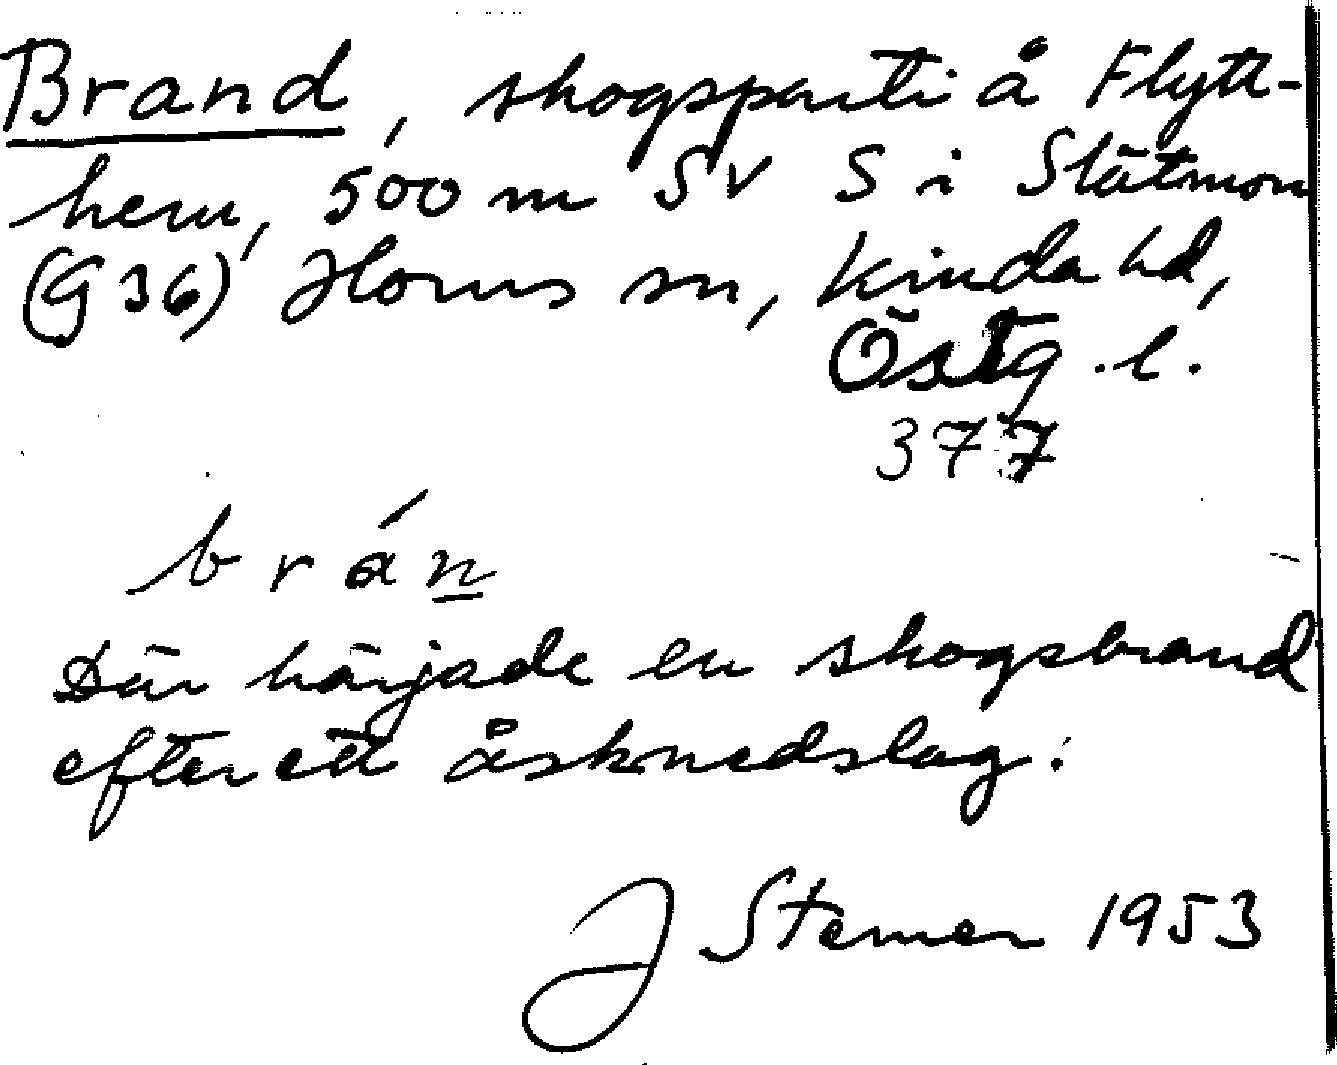 Brand, skogsparti å Flytt-
hem, 500 m SV S i Slätmon
(G 36) Horns sn, Kinda hd,
Östg. l.
377
brán
Där härjade en skogsbrand
efter ett åsknedslag.
J Sterner 1953